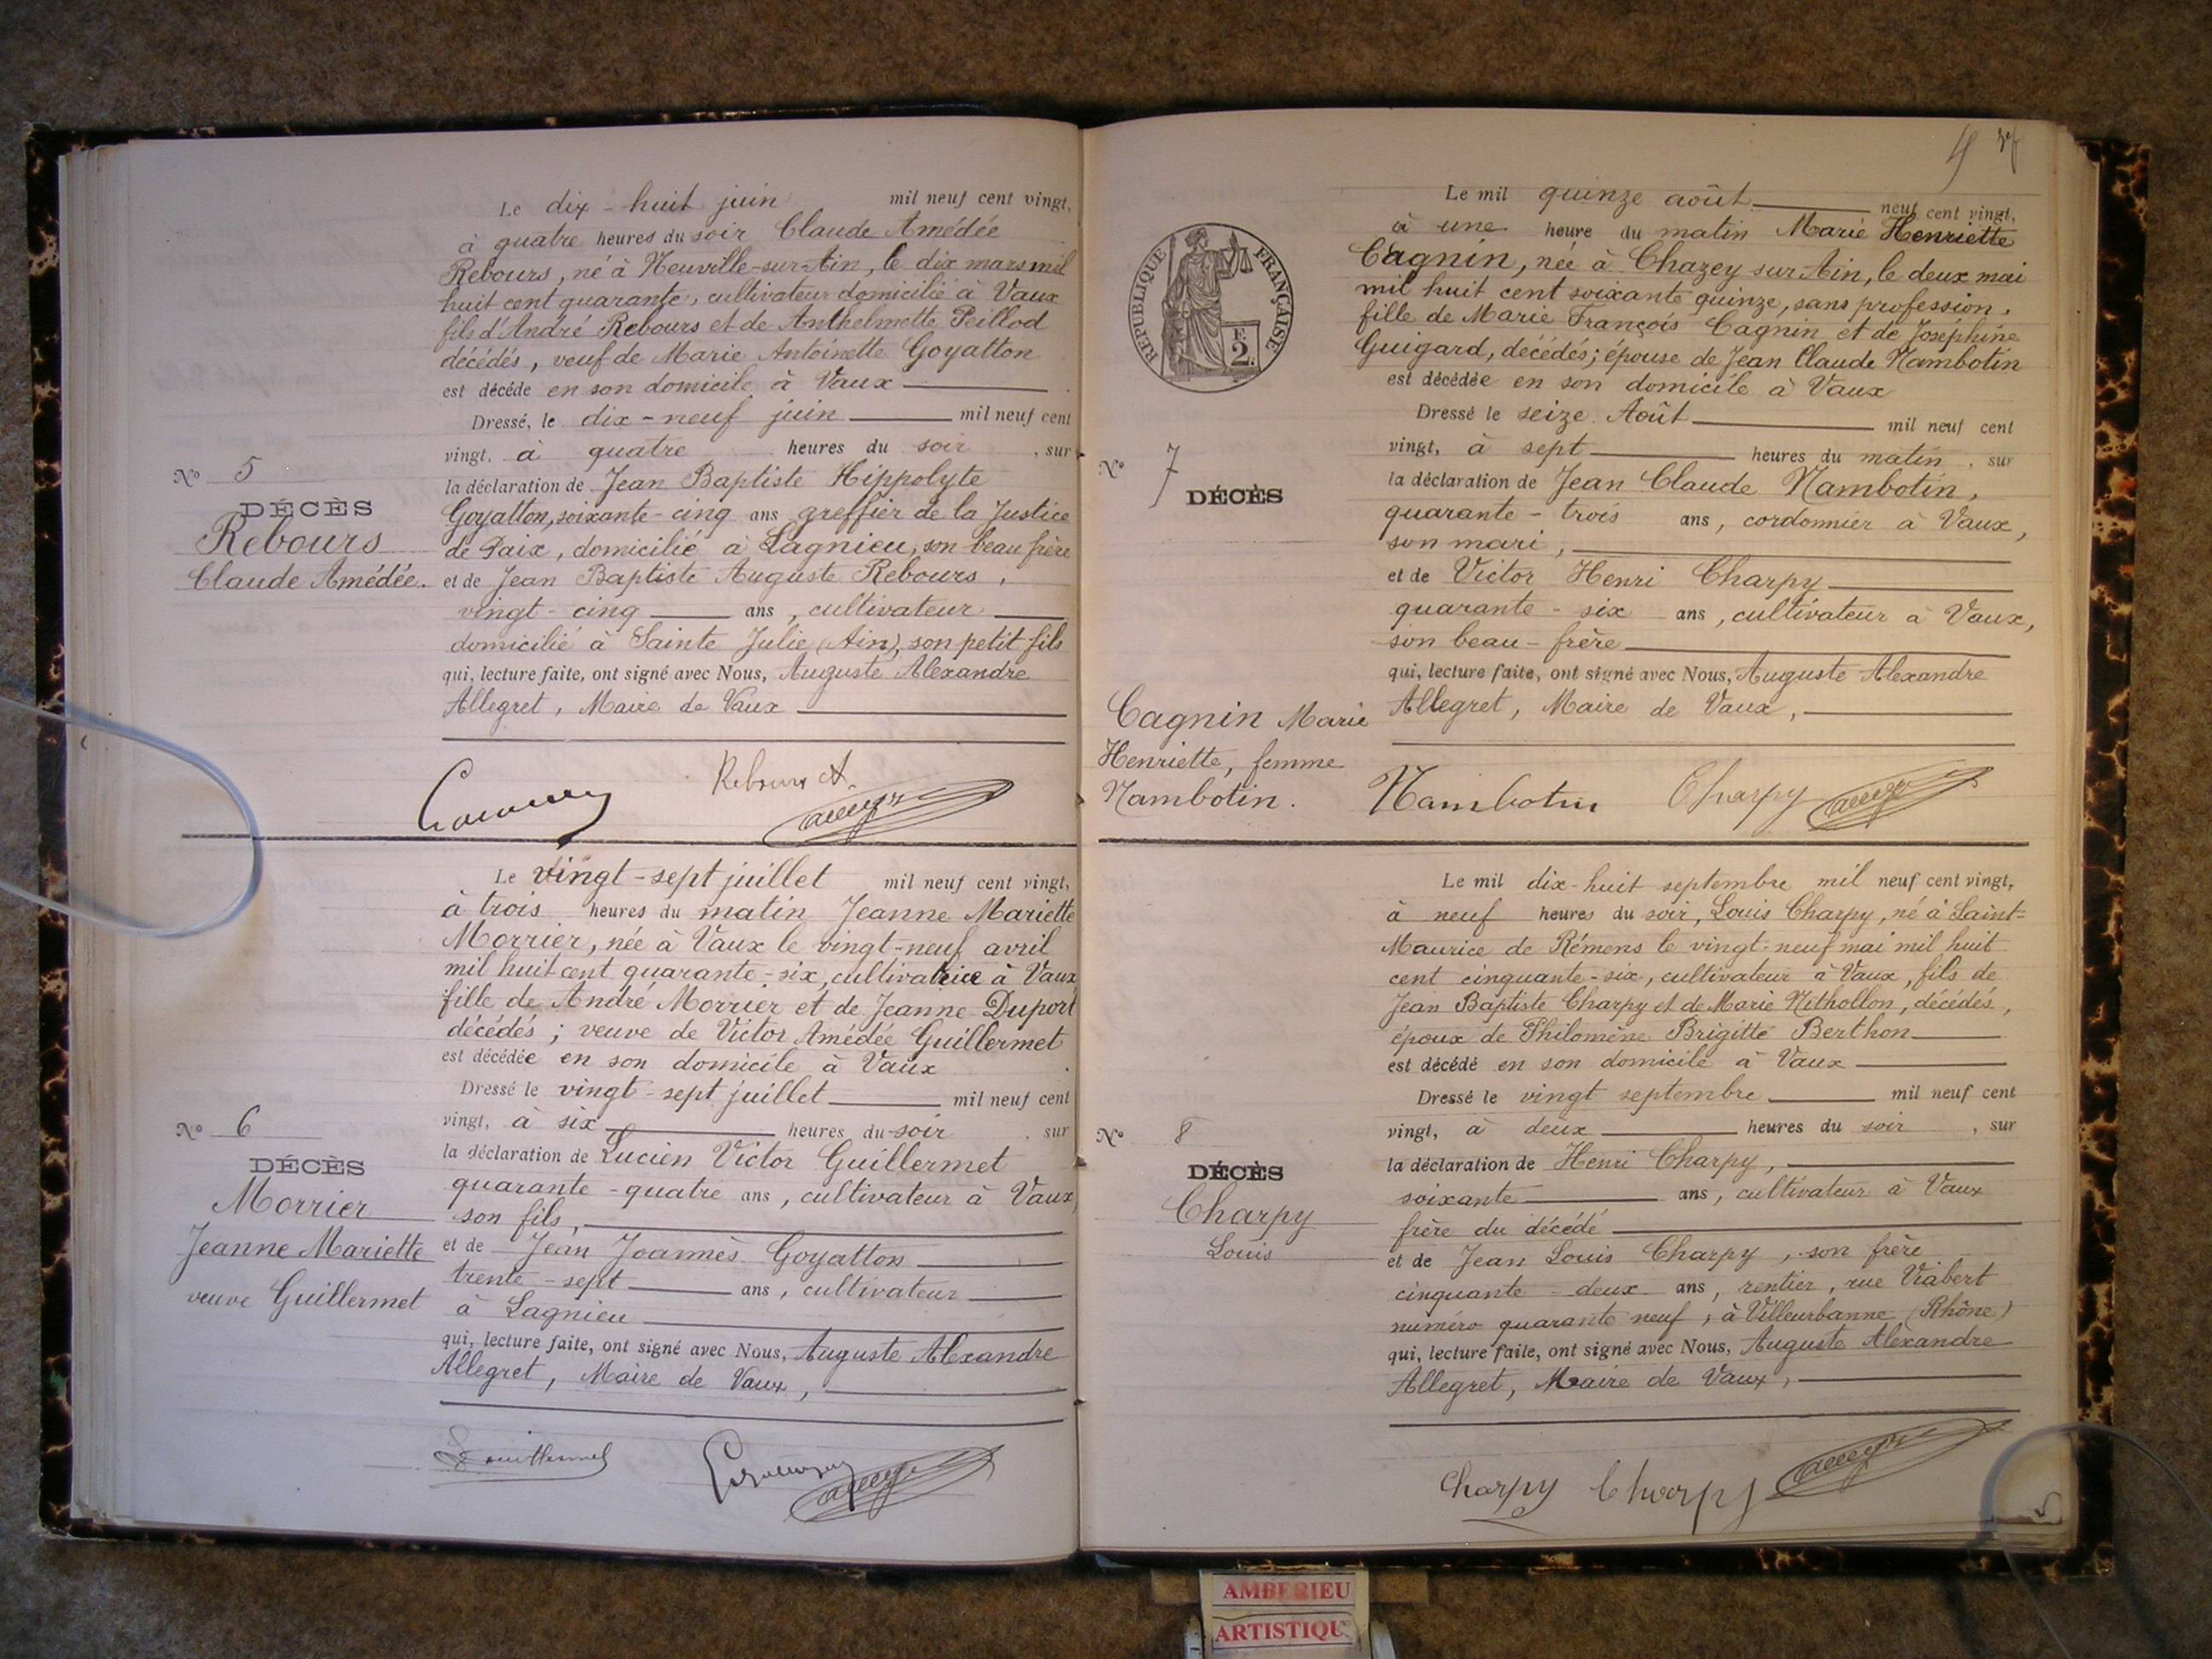 Le dix-huit juin mil neuf cent vingt,
à quatre heures du soir Claude Amédée
Rebours, né à Neuville-sur-Ain, le dix mars mil
huit cent quarante, cultivateur domicilié à Vaux
fils d'André Rebours et de Anthelmette Peillod
décédés, veuf de Marie Antoinette Goyatton
est décédé en son domicile à Vaux
Dressé, le dix-neuf juin mil neuf cent
vingt, à quatre heures du soir, sur
la déclaration de Jean Baptiste Hippolyte
Goyatton, soixante-cinq ans greffier de la Justice
de Paix, domicilié à Lagnieu, son beau frère
et de Jean Baptiste Auguste Rebours,
vingt-cinq ans, cultivateur
domicilié à Sainte Julie (Ain), son petit fils
qui, lecture faite, ont signé avec Nous, Auguste Alexandre
Allegret, Maire de Vaux
N° 5
DÉCÈS
Rebours
Claude Amédée.
Rebours A.
Le vingt-sept juillet mil neuf cent vingt,
à trois heures du matin Jeanne Mariette
Morrier, née à Vaux le vingt-neuf avril
mil huit cent quarante-six, cultivatrice à Vaux
fille de André Morrier et de Jeanne Duport
décédés; veuve de Victor Amédée Guillermet
est décédée en son domicile à Vaux
Dressé le vingt-sept juillet mil neuf cent
vingt, à six heures du soir, sur
la déclaration de Lucien Victor Guillermet
quarante-quatre ans, cultivateur à Vaux
son fils,
et de Jean Joannès Goyatton
trente-sept ans, cultivateur
à Lagnieu
qui, lecture faite, ont signé avec Nous, Auguste Alexandre
Allegret, Maire de Vaux,
N° 6
DÉCÈS
Morrier
Jeanne Mariette
veuve Guillermet
Guillermet
RÉPUBLIQUE FRANÇAISE
2
Le mil quinze août neuf cent vingt,
à une heure du matin Marie Henriette
Cagnin, née à Chazey sur Ain, le deux mai
mil huit cent soixante quinze, sans profession,
fille de Marie François Cagnin et de Joséphine
Guigard, décédés; épouse de Jean Claude Nambotin
est décédée en son domicile à Vaux
Dressé le seize Août mil neuf cent
vingt, à sept heures du matin, sur
la déclaration de Jean Claude Nambotin,
quarante-trois ans, cordonnier à Vaux,
son mari,
et de Victor Henri Charpy
quarante-six ans, cultivateur à Vaux,
son beau-frère
qui, lecture faite, ont signé avec Nous, Auguste Alexandre
Allegret, Maire de Vaux,
N° 7
DÉCÈS
Cagnin Marie
Henriette, femme
Nambotin.
Nambotin Charpy
Le mil dix-huit septembre mil neuf cent vingt,
à neuf heures du soir, Louis Charpy, né à Saint-
Maurice de Rémens le vingt-neuf mai mil huit
cent cinquante-six, cultivateur à Vaux, fils de
Jean Baptiste Charpy et de Marie Nithollon, décédés,
époux de Philomène Brigitte Berthon
est décédé en son domicile à Vaux
Dressé le vingt septembre mil neuf cent
vingt, à deux heures du soir, sur
la déclaration de Henri Charpy,
soixante ans, cultivateur à Vaux
frère du décédé
et de Jean Louis Charpy, son frère
cinquante-deux ans, rentier, rue Viabert
numéro quarante neuf, à Villeurbanne (Rhône)
qui, lecture faite, ont signé avec Nous, Auguste Alexandre
Allegret, Maire de Vaux,
N° 8
DÉCÈS
Charpy
Louis
Charpy Charpy
AMBERIEU
ARTISTIQU